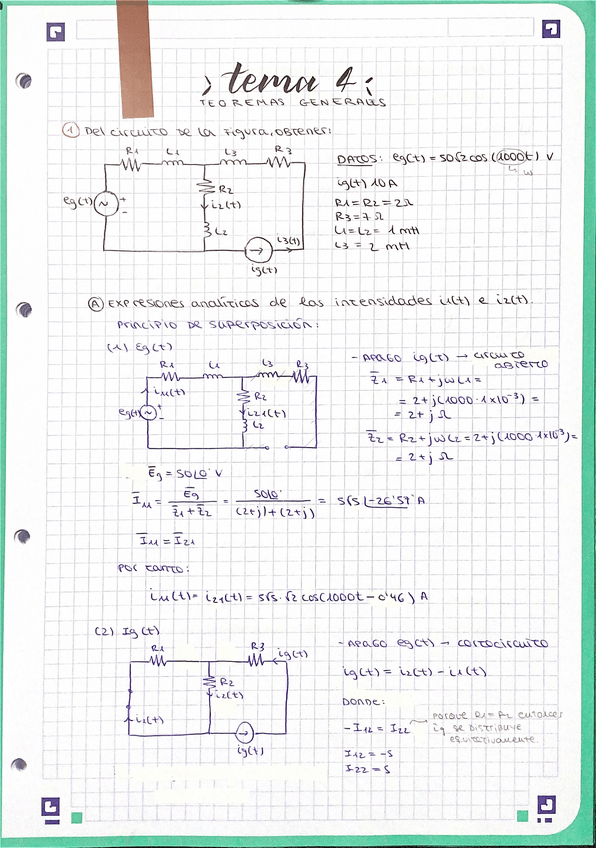 tema 4
TEOREMAS GENERALES
1 Del circuito de la figura, obtener:
R1 L1 L3 R3
eg(t) + - R2 i2(t) L2 i3(t) ig(t)
DATOS: eg(t) = 50√2 cos (1000t) V
ω
ig(t) 10A
R1 = R2 = 2Ω
R3 = 7 Ω
L1 = L2 = 1 mH
L3 = 2 mH
A Expresiones analíticas de las intensidades i1(t) e i2(t).
Principio de superposición:
(1) Eg(t)
R1 L1 L3 R3
i11(t) eg(t) + - R2 i21(t) L2
- Apago ig(t) → circuito
abierto
Z̄1 = R1 + jωL1 =
= 2+j(1000·1x10⁻³) =
= 2+j Ω
Z̄2 = R2 + jωL2 = 2+j(1000·1x10⁻³) =
= 2+j Ω
Ēg = 50∠0° V
Ī11 = Ēg / (Z̄1 + Z̄2) = 50∠0° / ((2+j)+(2+j)) = 5√5 ∠-26'57° A
Ī11 = Ī21
Por tanto:
i11(t) = i21(t) = 5√5·√2 cos(1000t - 0'46) A
(2) Ig(t)
R1 R3 ig(t)
R2 i2(t) i1(t) ig(t)
- Apago eg(t) → cortocircuito
ig(t) = i2(t) - i1(t)
Donde:
-I12 = I22
Porque R1 = R2 entonces
ig se distribuye
equitativamente.
I12 = -5
I22 = 5